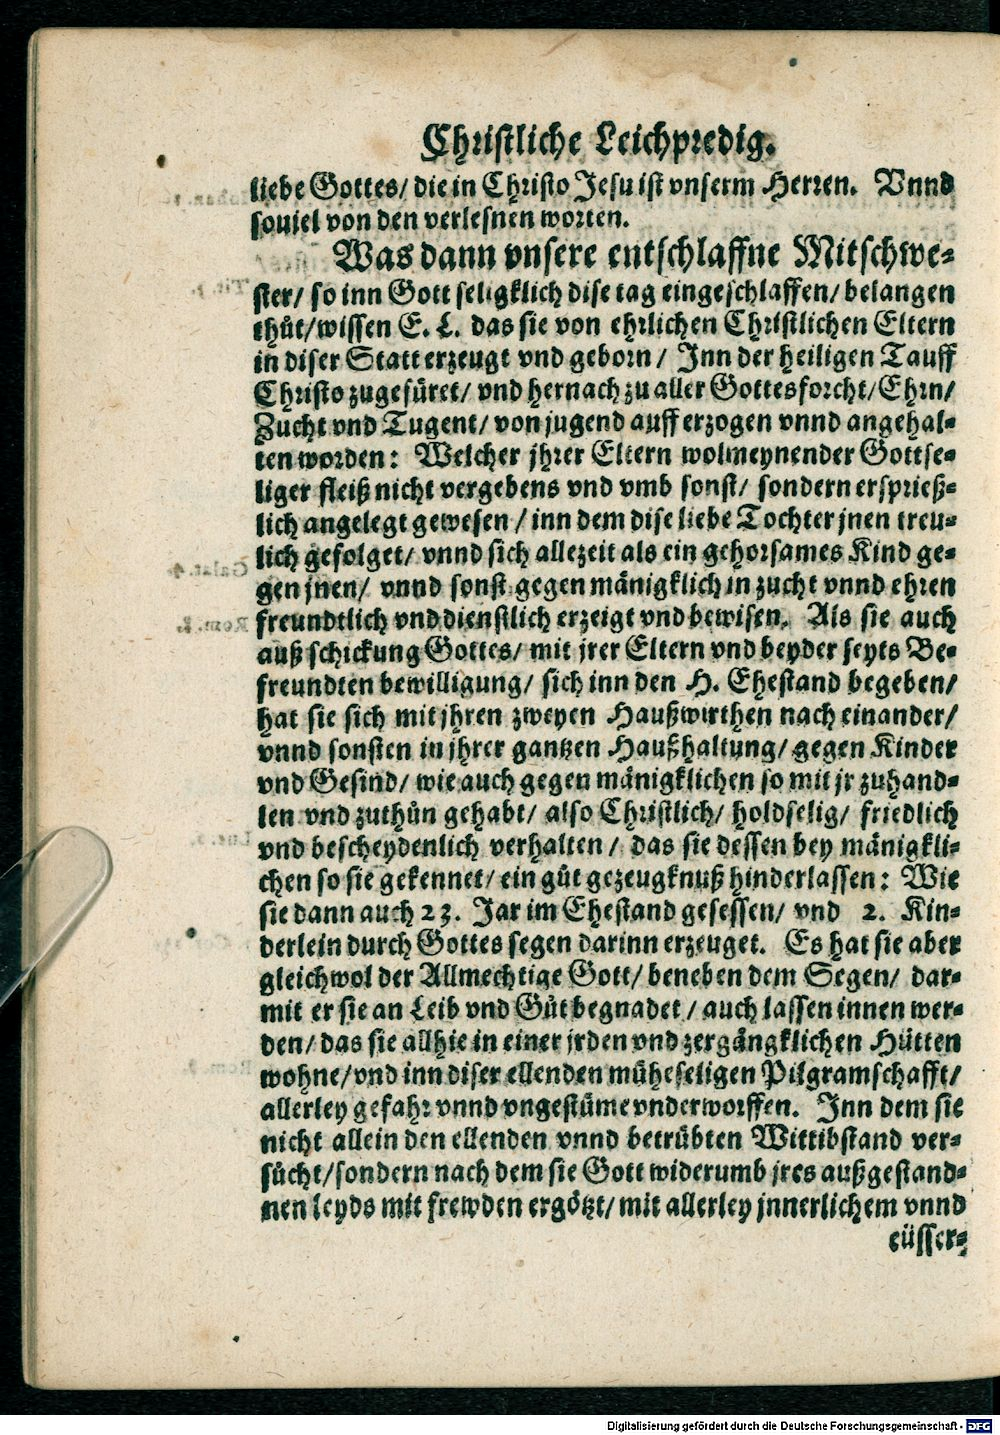 Christliche Leichpredig.
liebe Gottes/ die in Christo Jesu ist vnserm Herren. Vnnd
souiel von den verlesnen worten.
Was dann vnsere entschlaffne Mitschwe-
ster/ so inn Gott seligklich dise tag eingeschlaffen/ belangen
thůt/ wissen E. L. das sie von ehrlichen Christlichen Eltern
in diser Statt erzeugt vnd geborn/ Inn der heiligen Tauff
Christo zugefüret/ vnd hernach zu aller Gottesforcht/ Ehrn/
Zucht vnd Tugent/ von jugend auff erzogen vnnd angehal-
ten worden: Welcher jhrer Eltern wolmeynender Gottse-
liger fleiß nicht vergebens vnd vmb sonst/ sondern ersprieß-
lich angelegt gewesen/ inn dem dise liebe Tochter jnen treu-
lich gefolget/ vnnd sich allezeit als ein gehorsames Kind ge-
gen jnen/ vnnd sonst gegen mänigklich in zucht vnnd ehren
freundtlich vnd dienstlich erzeigt vnd bewisen. Als sie auch
auß schickung Gottes/ mit jrer Eltern vnd beyder seyts Be-
freundten bewilligung/ sich inn den H. Ehestand begeben/
hat sie sich mit jhren zweyen Haußwirthen nach einander/
vnnd sonsten in jhrer gantzen Haußhaltung/ gegen Kinder
vnd Gesind/ wie auch gegen mänigklichen so mit jr zuhand-
len vnd zuthůn gehabt/ also Christlich/ holdselig/ friedlich
vnd bescheydenlich verhalten/ das sie dessen bey mänigkli-
chen so sie gekennet/ ein gůt gezeugknuß hinderlassen: Wie
sie dann auch 23. Jar im Ehestand gesessen/ vnd 2. Kin-
derlein durch Gottes segen darinn erzeuget. Es hat sie aber
gleichwol der Allmechtige Gott/ beneben dem Segen/ dar-
mit er sie an Leib vnd Gůt begnadet/ auch lassen innen wer-
den/ das sie allhie in einer jrden vnd zergängklichen Hütten
wohne/ vnd inn diser ellenden müheseligen Pilgramschafft/
allerley gefahr vnnd vngestüme vnderworffen. Inn dem sie
nicht allein den ellenden vnnd betrübten Wittibstand ver-
sůcht/ sondern nach dem sie Gott widerumb jres außgestand-
nen leyds mit frewden ergötzt/ mit allerley jnnerlichem vnnd
eüsser-
Digitalisierung gefördert durch die Deutsche Forschungsgemeinschaft - DFG